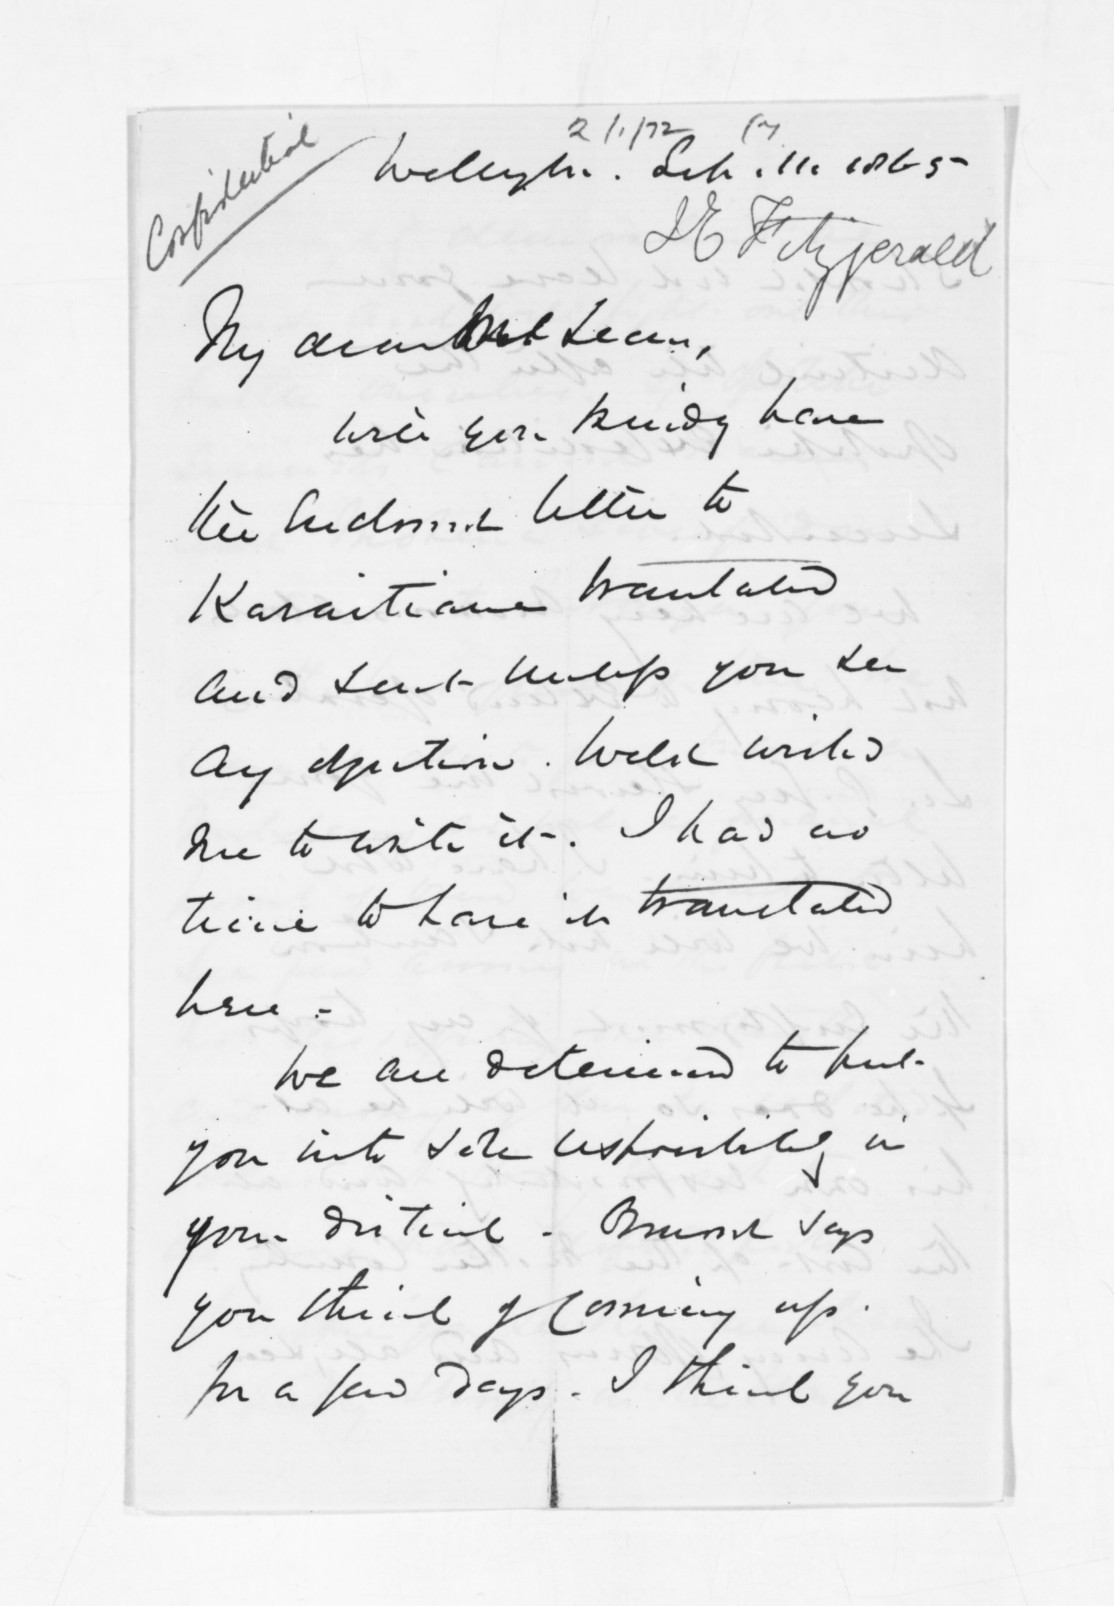 Confidential
2/1/72
Wellington. Sep. 11. 1865
J E Fitzgerald
My dear McLean,
Will you kindly have
the enclosed letter to
Karaitiana translated
and sent unless you see
any objection. Weld wished
me to write it. I had no
time to have it translated
here -
We are determined to put
you into sole responsibility in
your district - Russell says
you think of coming up
for a few days. I think you